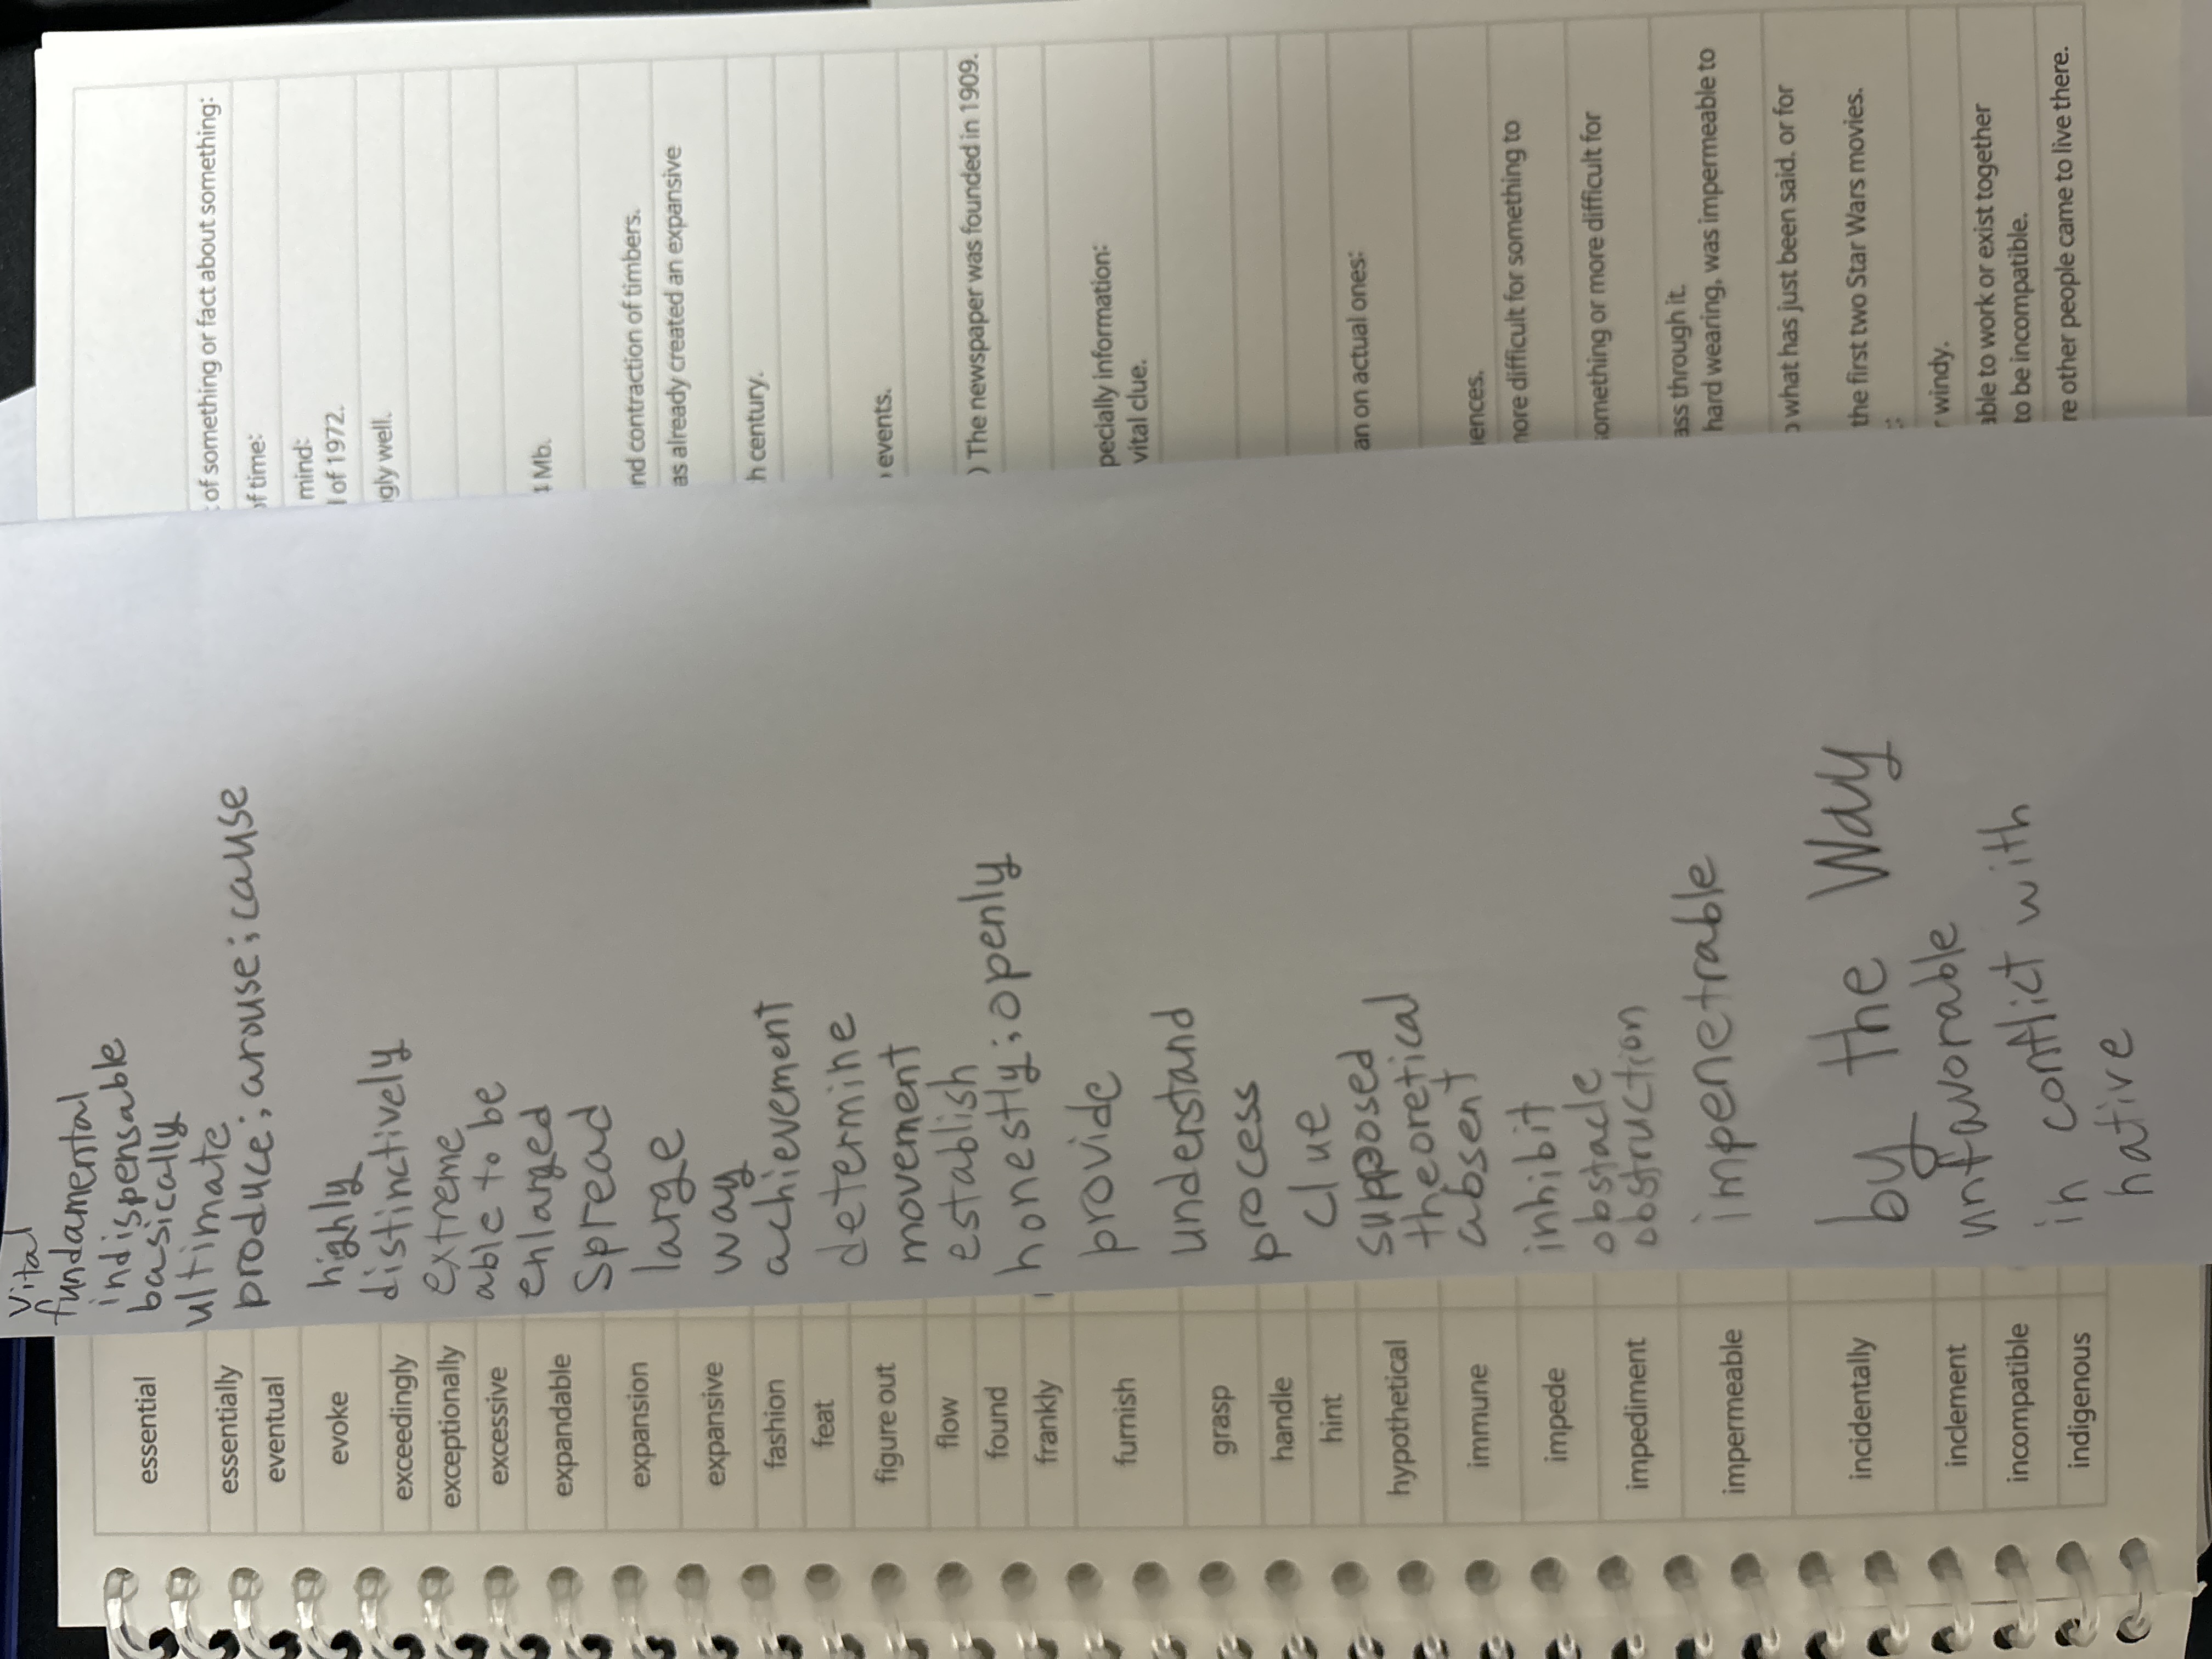 essential
essentially
eventual
evoke
exceedingly
exceptionally
excessive
expandable
expansion
expansive
fashion
feat
figure out
flow
found
frankly
furnish
grasp
handle
hint
hypothetical
immune
impede
impediment
impermeable
incidentally
inclement
incompatible
indigenous
vital
fundamental
indispensable
basically
ultimate
produce; arouse; cause
highly
distinctively
extreme
able to be
enlarged
spread
large
way
achievement
determine
movement
establish
honestly; openly
provide
understand
process
clue
supposed
theoretical
absent
inhibit
obstacle
obstruction
impenetrable
by the way
unfavorable
in conflict with
native
of something or fact about something:
of time:
mind:
of 1972.
gly well.
4 Mb.
nd contraction of timbers.
as already created an expansive
h century.
events.
) The newspaper was founded in 1909.
pecially information:
vital clue.
an on actual ones:
iences.
nore difficult for something to
omething or more difficult for
ass through it.
hard wearing, was impermeable to
o what has just been said. or for
the first two Star Wars movies.
r windy.
able to work or exist together
to be incompatible.
re other people came to live there.